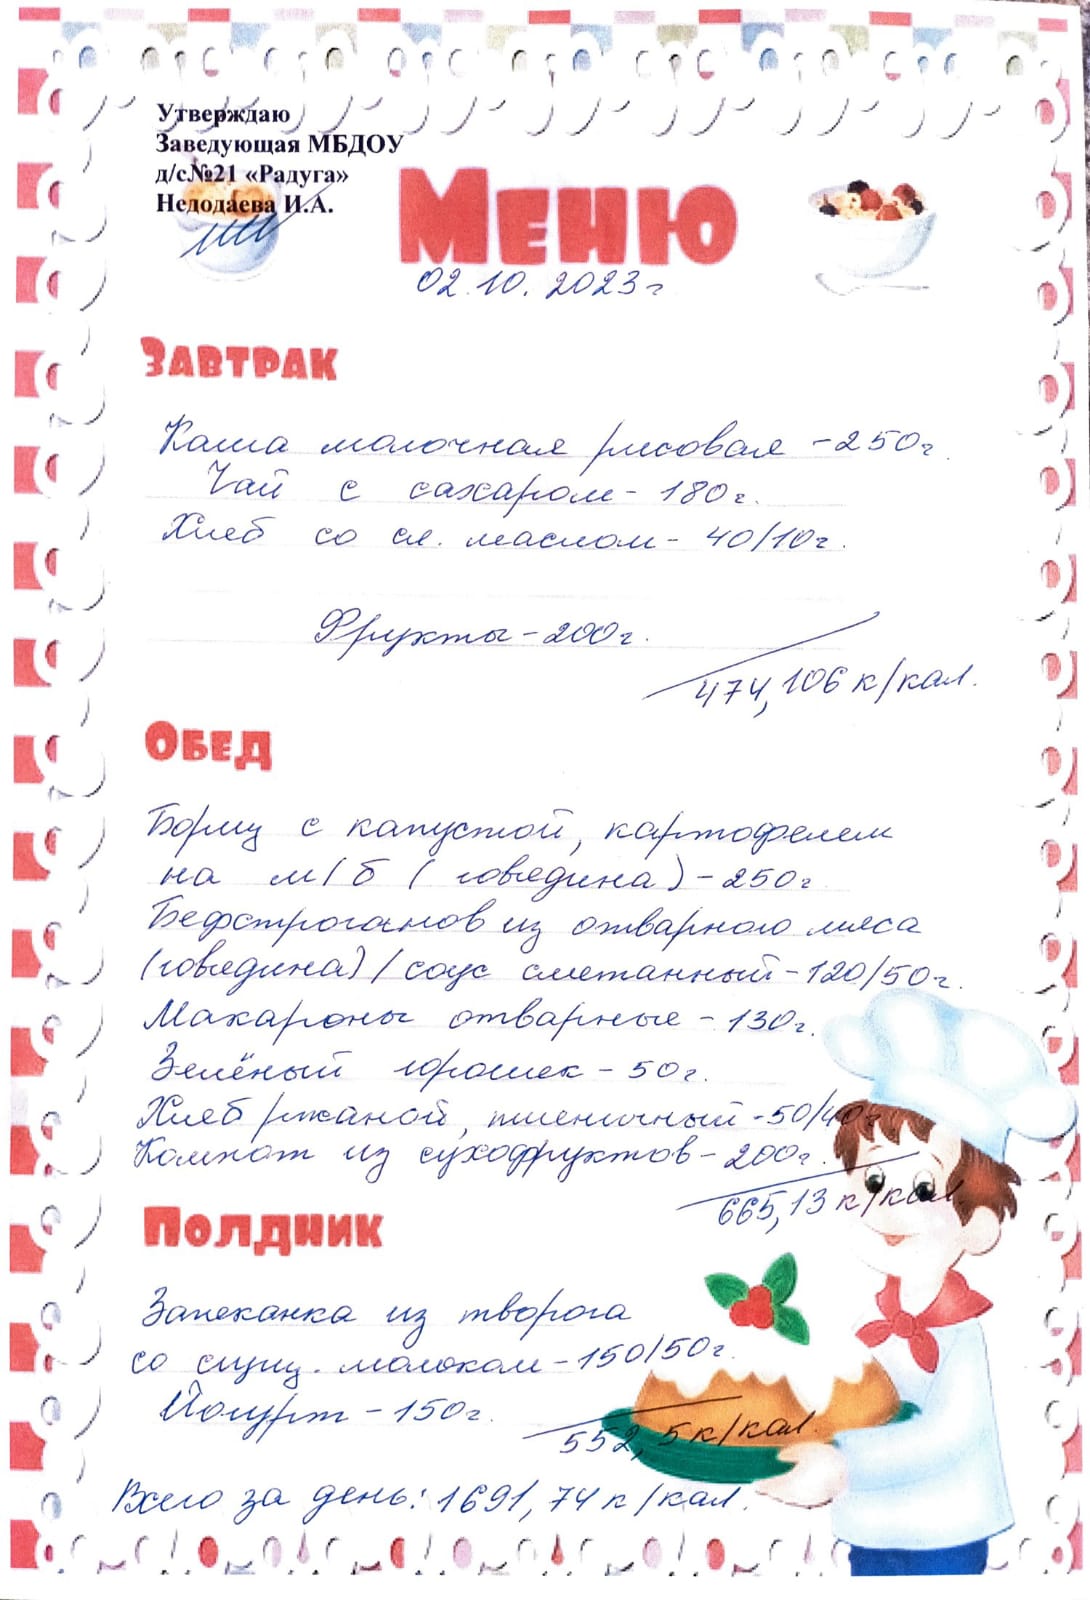 Утверждаю
Заведующая МБДОУ
д/с№21 «Радуга»
Недодаева И.А.
Меню
02.10.2023г
Завтрак
Каша молочная рисовая -250г.
Чай с сахаром- 180г.
Хлеб со сл. маслом- 40/10г.
Фрукты-200г.
474,106 к/кал.
Обед
Борщ с капустой, картофелем
на м/б (говядина)-250г
Бефстроганов из отварного мяса
(говядина)/соус сметанный-120/50г.
Макароны отварные - 130г.
Зелёный горошек - 50г.
Хлеб ржаной, пшеничный-50/40г.
Компот из сухофруктов- 200г.
665,13 к/кал
Полдник
Запеканка из творога
со сгущ. молоком-150/50г.
Йогурт - 150г.
552,5 к/кал.
Всего за день: 1691,74 к/кал.